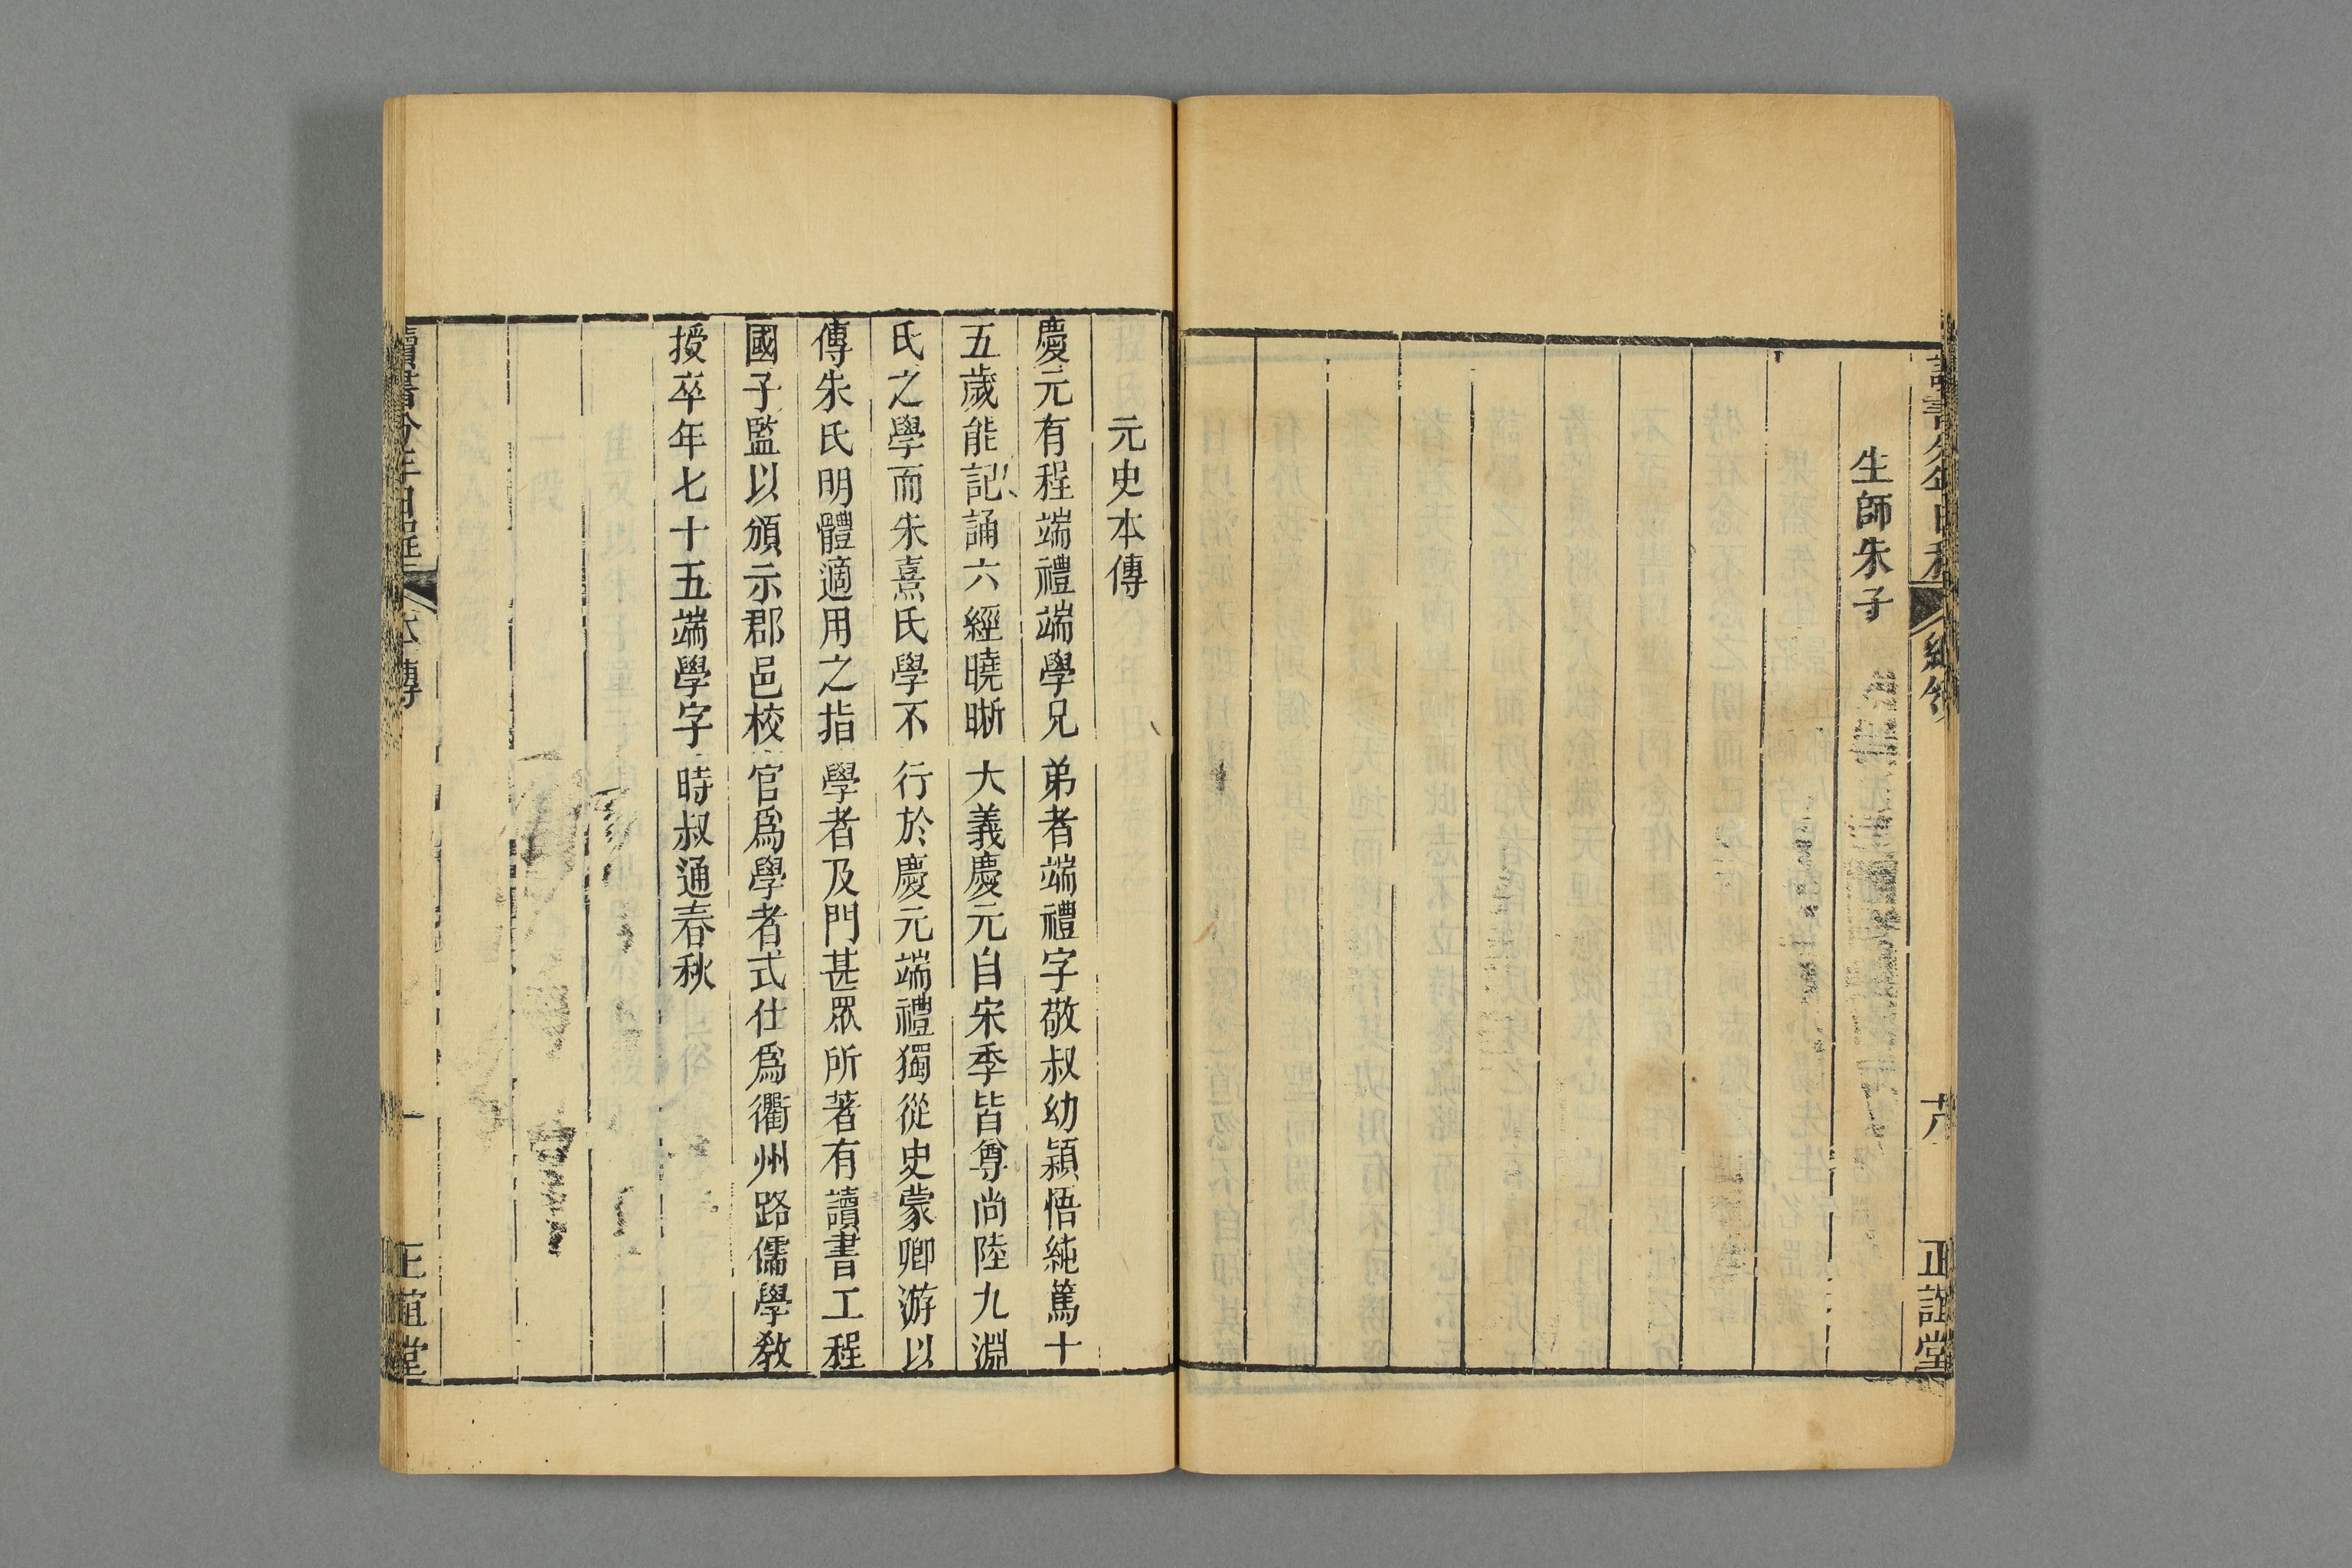 生師朱子
元史本傳
慶元有程端禮端學兄弟者端禮字敬叔幼穎悟純篤十
五歲能記誦六經曉晰大義慶元自宋季皆尊尚陸九淵
氏之學而朱熹氏學不行於慶元端禮獨從史蒙卿游以
傳朱氏明體適用之指學者及門甚眾所著有讀書工程
國子監以頒示郡邑校官爲學者式仕爲衢州路儒學教
授卒年七十五端學字時叔通春秋
讀書分年日程 本傳 一 正誼堂